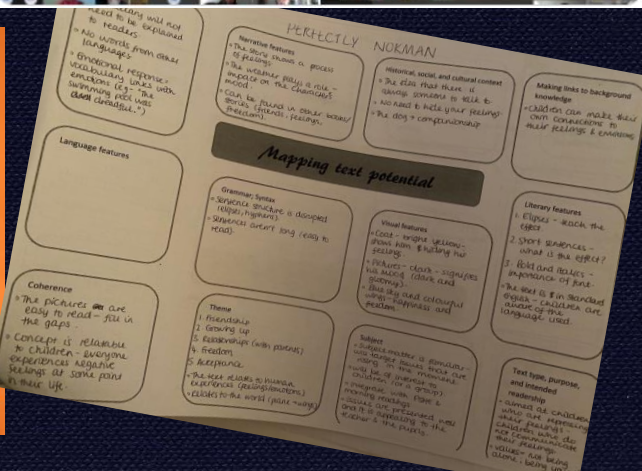 PERFECTLY NORMAN
need to be explained
to readers.
No words from other
languages
Emotional response -
vocabulary links with
emotions (eg - "The
swimming pool was
dreadful.")
Narrative features
The story shows a process
of feelings
The weather plays a role -
impact on the character's
mood.
Can be found in other books/
stories (friends, feelings,
freedom).
Historical, social, and cultural context
The idea that there is
always someone to talk to
No need to hide your feelings
The dog + companionship
Making links to background
knowledge
Children can make their
own connections to
their feelings & emotions
Mapping text potential
Language features
Grammar; Syntax
Sentence structure is disrupted
(ellipses, hyphens).
Sentences aren't long (easy to
read).
Visual features
Coat - bright yellow -
shows him hiding his
feelings.
Pictures - dark - signifies
his mood (dark and
gloomy).
Blue sky and colourful
wings - happiness and
freedom
Literary features
1. Ellipses - teach the
effect.
2. Short sentences -
what is the effect?
3. Bold and italics -
importance of font.
The text is in standard
English - children are
aware of the
language used.
Coherence
The pictures are
easy to read - fill in
the gaps.
Concept is relatable
to children - everyone
experiences negative
feelings at some point
in their life.
Theme
1. Friendship
2. Growing up
3. Relationships (with parents)
4. Freedom
5. Acceptance
The text relates to human
experiences (feelings/emotions)
relates to the world
Subject
Subject matter is
will target issues that are
in the moment.
will be of interest to
children (or a group).
integrate with PSHE &
morning readings
issues are presented well
and it is appealing to the
teacher & the pupils.
Text type, purpose,
and intended
readership
aimed at children
who are repressing
their feelings -
children who do
not communicate
their feelings.
values - not being
alone, being